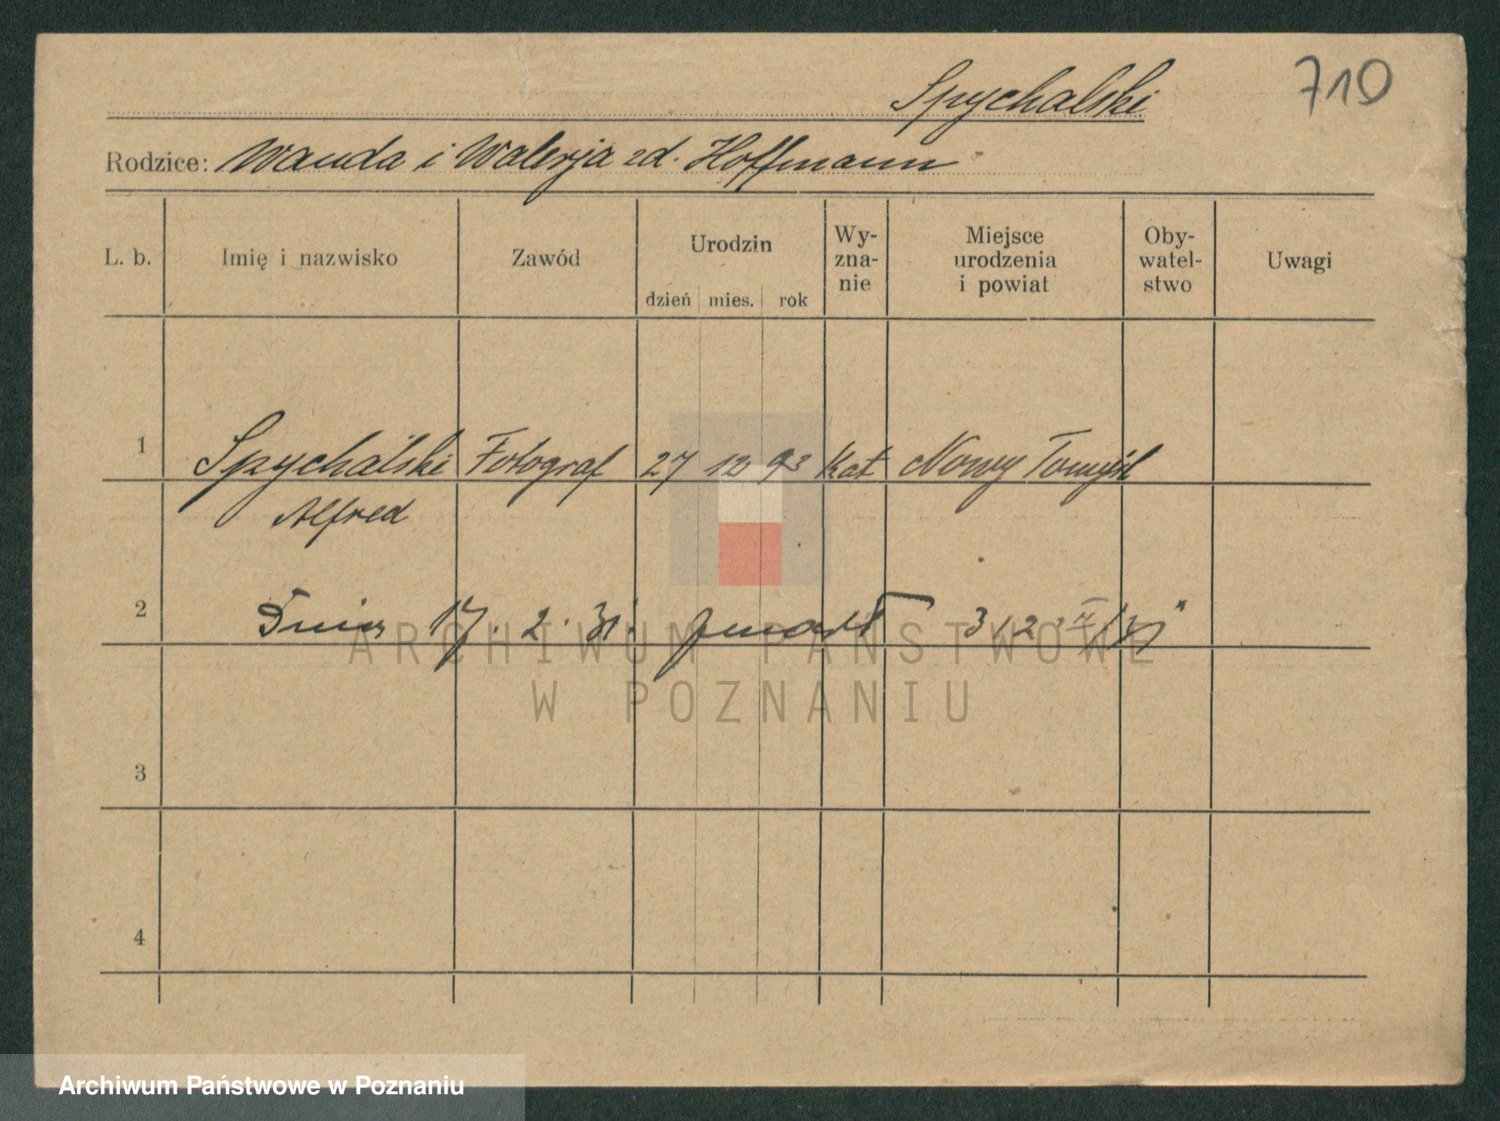 710
Spychalski
Rodzice: Wanda i Walerja zd. Hoffmann
L. b. Imię i nazwisko Zawód Urodzin dzień mies. rok Wy-zna-nie Miejsce urodzenia i powiat Oby-watel-stwo Uwagi
1 Spychalski Fotograf 27 12 93 kat Nowy Tomyśl
Alfred
2 Dnia 17. 2. 31. zmarł 312 II/31
ARCHIWUM PAŃSTWOWE
W POZNANIU
3
4
Archiwum Państwowe w Poznaniu